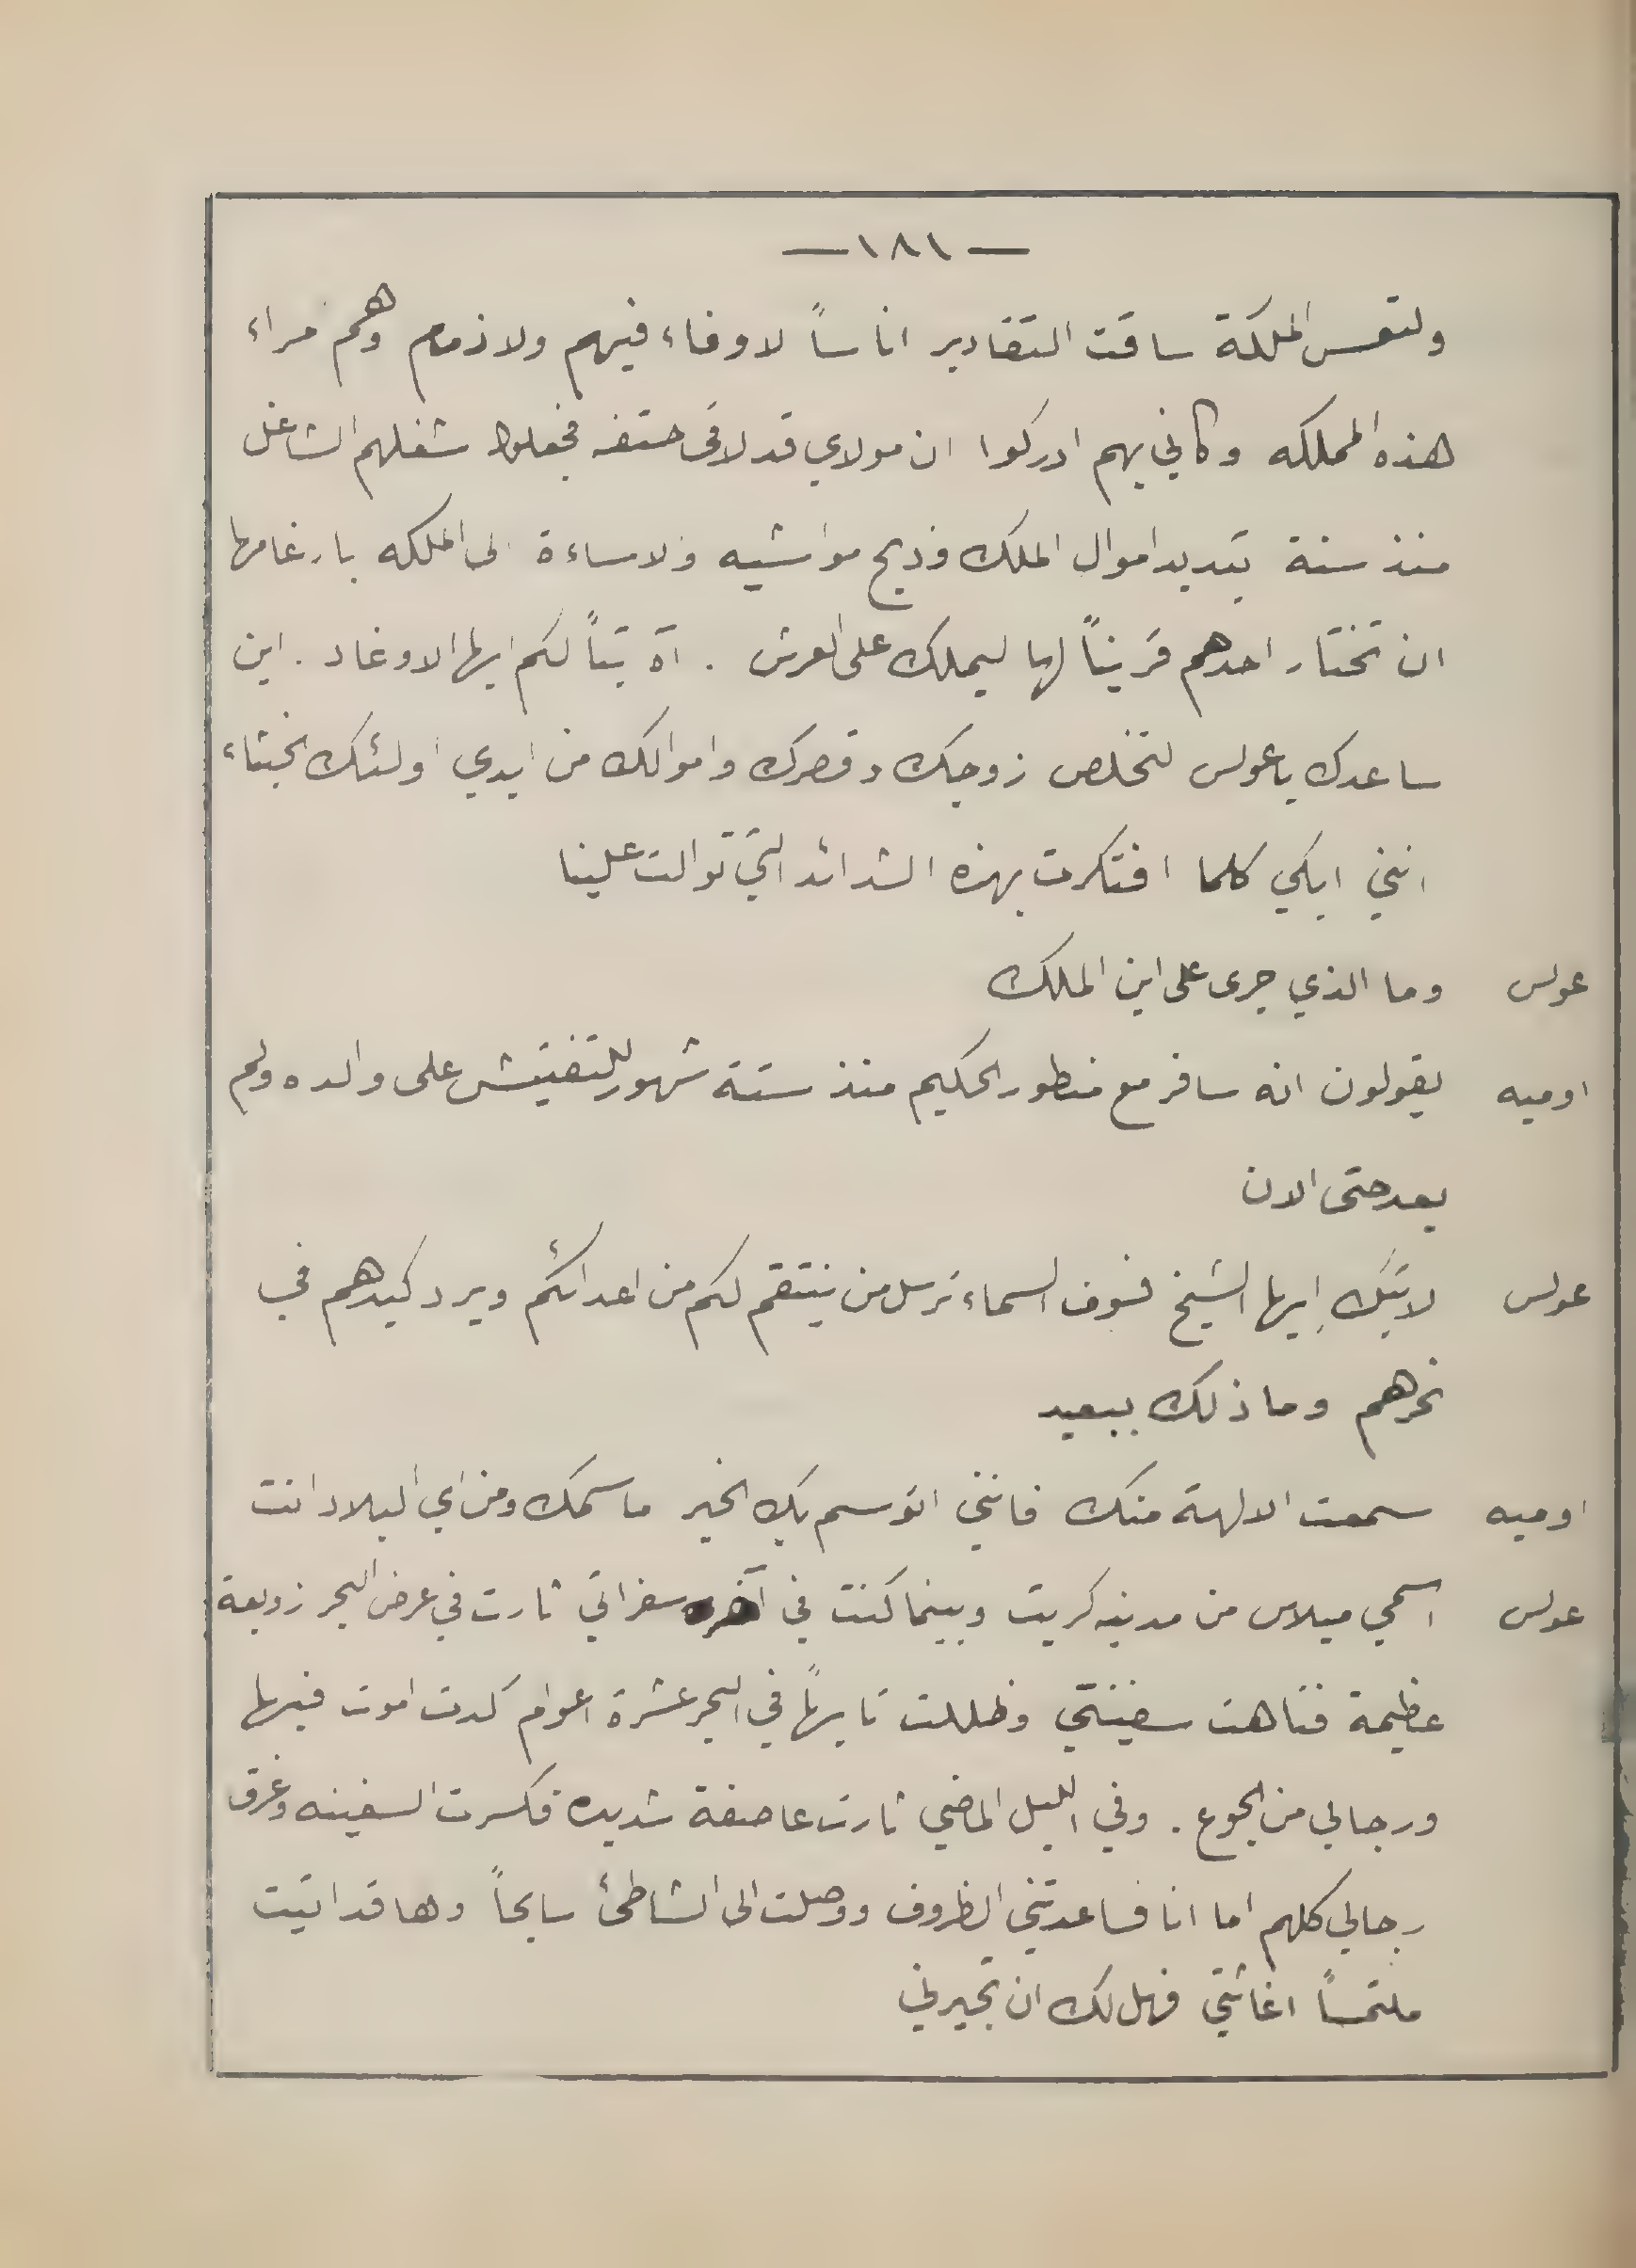 — ١٨١ —
ولتعس الملكة ساقت التقادير اناساً لا وفاء فيهم ولا ذمام وهم امراء
هذه المملكه وكاني بهم ادركوا ان مولاي قد لاقى حتفه فجعلوا شغلهم الشاغل
منذ سنة تبديد اموال الملك وذبح مواشيه والاساءة الى الملكه بارغامها
ان تختار احدهم قريناً لها ليملك على العرش . آه تباً لكم ايها الاوغاد . اين
ساعدك يا عولس لتخلص زوجك وقصرك واموالك من ايدي اولئك الخبثاء
انني ابكي كلما افتكرت بهذه الشدائد التي توالت علينا
عولس وما الذي جرى على ابن الملك
اوميه يقولون انه سافر مع منطور الحكيم منذ ستة شهور للتفتيش على والده ولم
يعد حتى الان
عولس لا تبك ايها الشيخ فسوف السماء ترسل من ينتقم لكم من اعدائكم ويرد كيدهم في
نحرهم وما ذلك ببعيد
اوميه سمعت الالهة منك فانني اتوسم بك الخير ما سمك ومن اي البلاد انت
عولس اسمي ميلاس من مدينه كريت وبينما كنت في آخر سفراتي ثارت في عرض البحر زوبعة
عظيمة فتاهت سفينتي وظللت تايهاً في البحر عشرة اعوام كدت اموت فيها
ورجالي من الجوع . وفي الليل الماضي ثارت عاصفة شديده فكسرت السفينه وغرق
رجالي كلهم اما انا فساعدتني الظروف ووصلت الى الشاطئ سابحاً وها قد اتيت
ملتمساً اغاثتي فهل لك ان تجيرني